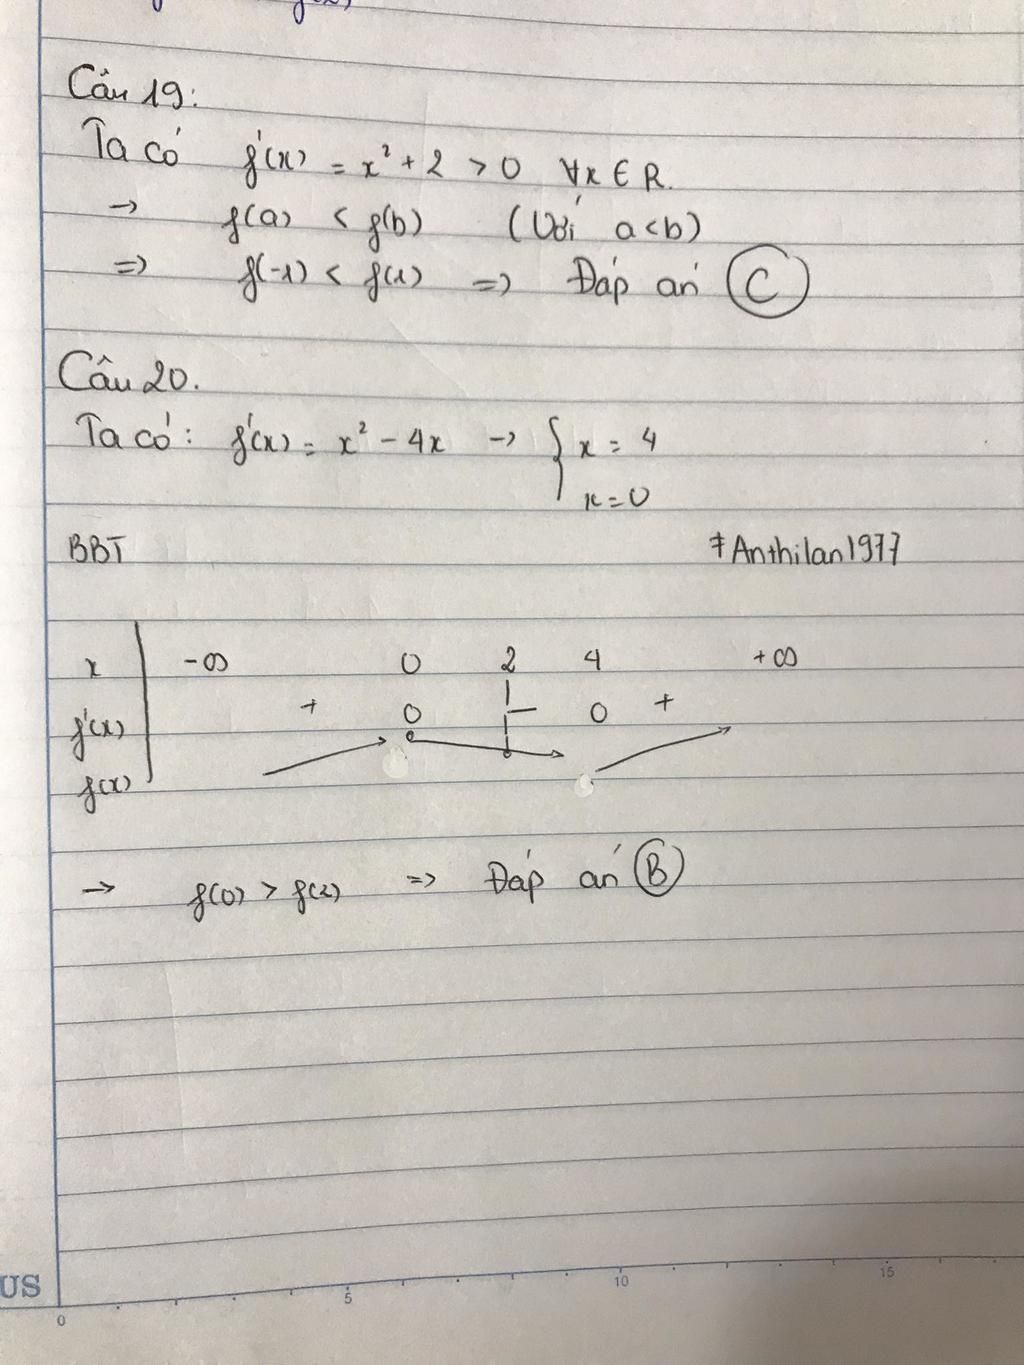 Câu 19:
Ta có f'(x) = x² + 2 > 0 ∀x ∈ R.
→ f(a) < f(b) (Với a<b)
=> f(-1) < f(1) => Đáp án C
Câu 20.
Ta có: f'(x) = x² - 4x → { x = 4
x = 0
BBT
#Anthilan1977
x -∞ 0 2 4 +∞
f'(x) + 0 - 0 +
f(x)
→ f(0) > f(2) => Đáp án B
US
0 5 10 15